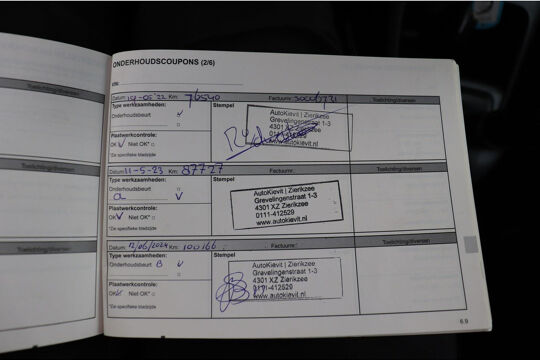 ONDERHOUDSCOUPONS (2/6)
VIN:
Toelichting/diversen
Datum: Km: 76540 Factuurnr.: Toelichting/diversen
Type werkzaamheden: Stempel
Onderhoudsbeurt v
AutoKievit | Zierikzee
Grevelingenstraat 1-3
4301 XZ Zierikzee
0111-412529
www.autokievit.nl
Plaatwerkcontrole:
OK v Niet OK*
*Zie specifieke bladzijde
Toelichting/diversen
Datum: 11-5-23 Km: 87727 Factuurnr.: Toelichting/diversen
Type werkzaamheden: Stempel
Onderhoudsbeurt
a v
AutoKievit | Zierikzee
Grevelingenstraat 1-3
4301 XZ Zierikzee
0111-412529
www.autokievit.nl
Plaatwerkcontrole:
OK v Niet OK*
*Zie specifieke bladzijde
Toelichting/diversen
Datum: 12/06/2024 Km: 100166 Factuurnr.: Toelichting/diversen
Type werkzaamheden: Stempel
Onderhoudsbeurt B v
AutoKievit | Zierikzee
Grevelingenstraat 1-3
4301 XZ Zierikzee
0111-412529
www.autokievit.nl
Plaatwerkcontrole:
OK Niet OK*
*Zie specifieke bladzijde
6.9